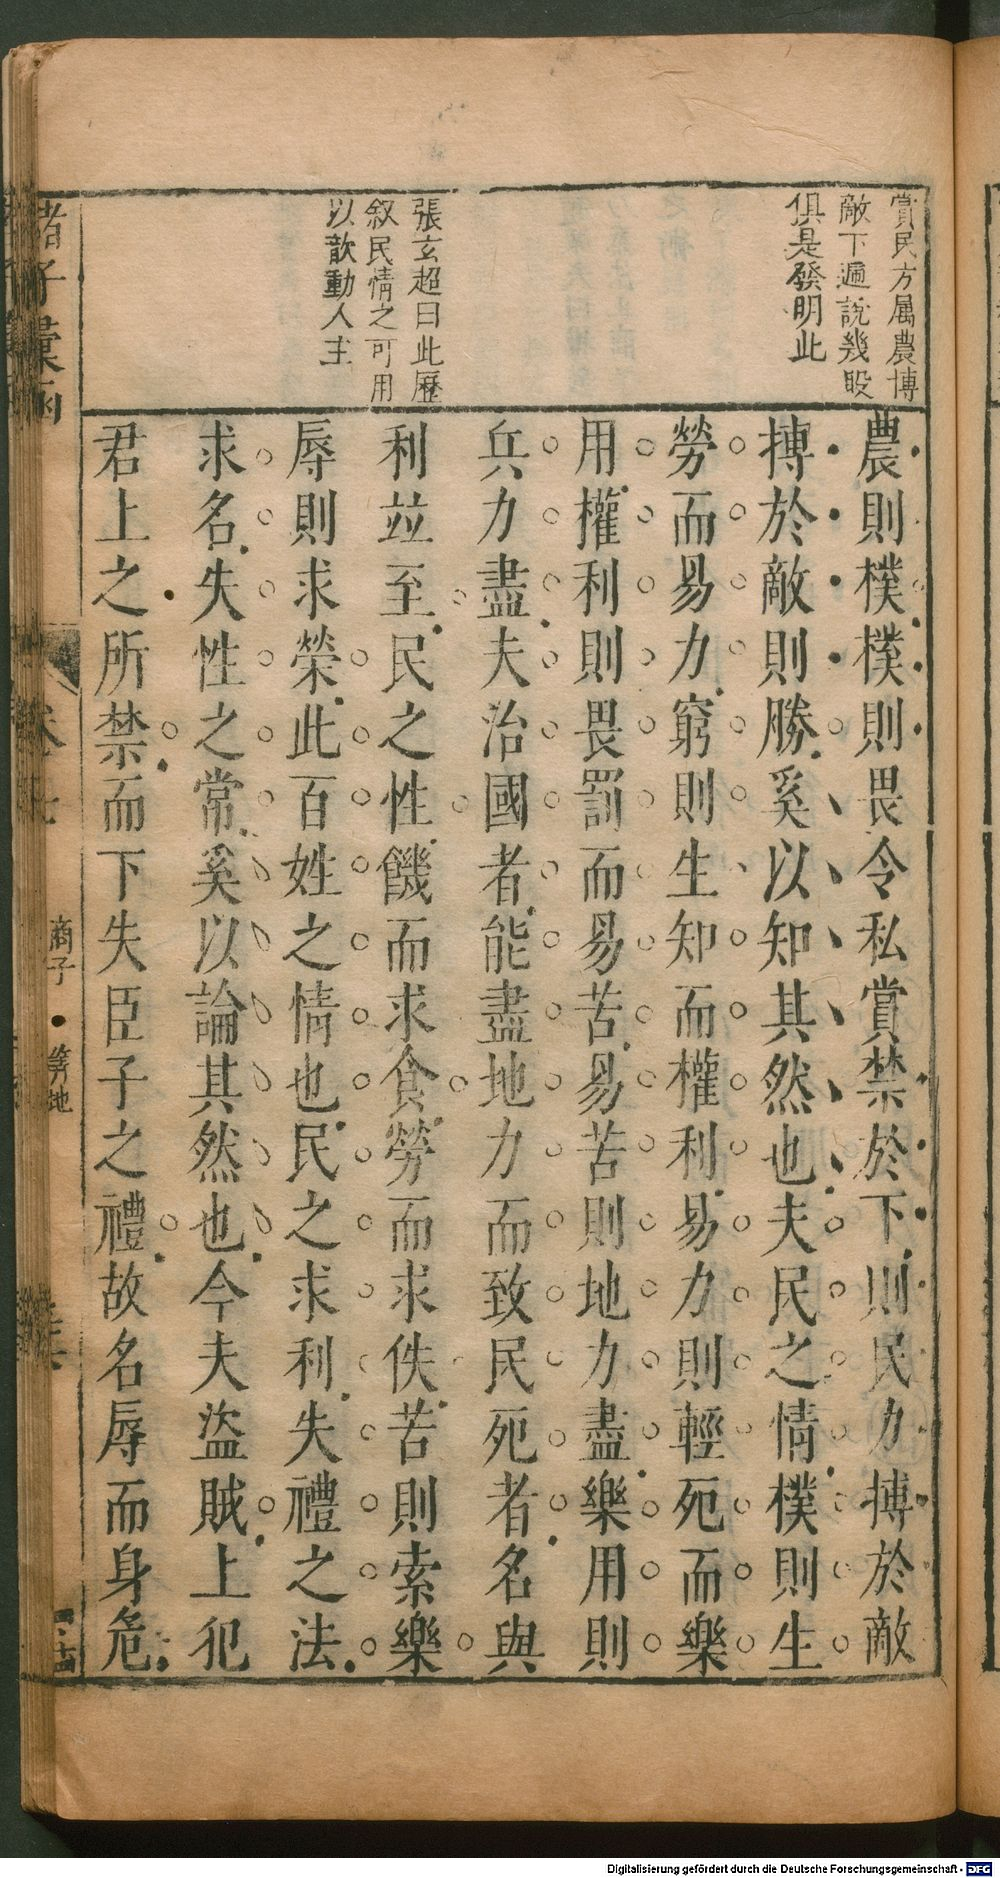 賞民方属農博
敵下遍說幾段
俱是發明此
張玄超曰此歷
叙民情之可用
以歆動人主
農則樸樸則畏令私賞禁於下則民力摶於敵
摶於敵則勝奚以知其然也夫民之情樸則生
勞而易力窮則生知而權利易力則輕死而樂
用權利則畏罰而易苦易苦則地力盡樂用則
兵力盡夫治國者能盡地力而致民死者名與
利並至民之性饑而求食勞而求佚苦則索樂
辱則求榮此百姓之情也民之求利失禮之法
求名失性之常奚以論其然也今夫盜賊上犯
君上之所禁而下失臣子之禮故名辱而身危
諸子彙函
商子
Digitalisierung gefördert durch die Deutsche Forschungsgemeinschaft - DFG